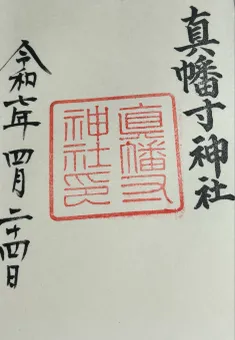 真幡寸神社
真幡寸
神社印
令和七年 四月 二十四日